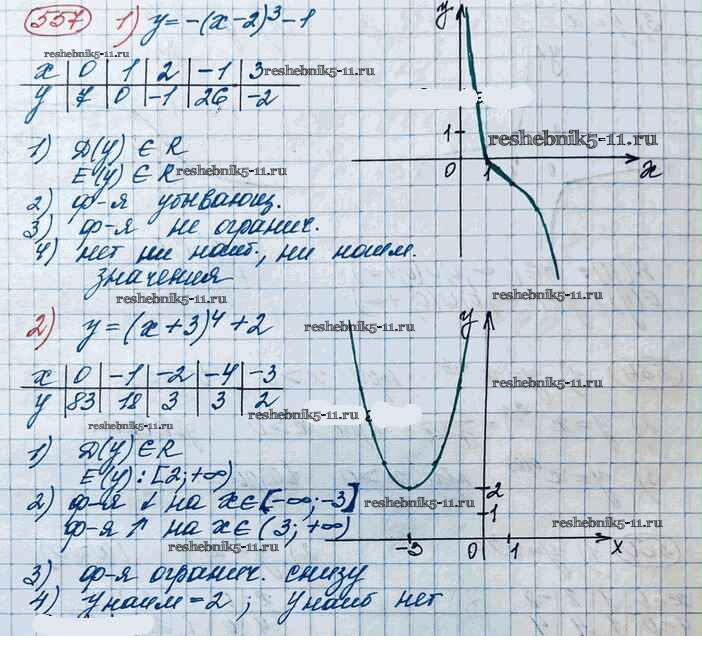 557 1) y = -(x-2)³-1
reshebnik5-11.ru
x | 0 | 1 | 2 | -1 | 3 reshebnik5-11.ru
y | 7 | 0 | -1 | 26 | -2
1) D(y) ∈ R
E(y) ∈ R reshebnik5-11.ru
2) ф-я убывающ.
3) ф-я не огранич.
4) нет ни наиб., ни наим.
значения
reshebnik5-11.ru
y
1
reshebnik5-11.ru
0 1 x
reshebnik5-11.ru
2) y = (x+3)⁴+2
x | 0 | -1 | -2 | -4 | -3
y | 83 | 18 | 3 | 3 | 2
reshebnik5-11.ru
reshebnik5-11.ru
1) D(y) ∈ R
E(y) : [2; +∞)
2) ф-я ↓ на x∈[-∞; -3]
ф-я ↑ на x∈(3; +∞)
reshebnik5-11.ru
3) ф-я огранич. снизу
4) y наим = 2 ; y наиб нет
reshebnik5-11.ru
y
reshebnik5-11.ru
reshebnik5-11.ru
reshebnik5-11.ru
2
reshebnik5-11.ru
1
reshebnik5-11.ru
-3 0 1 x
reshebnik5-11.ru